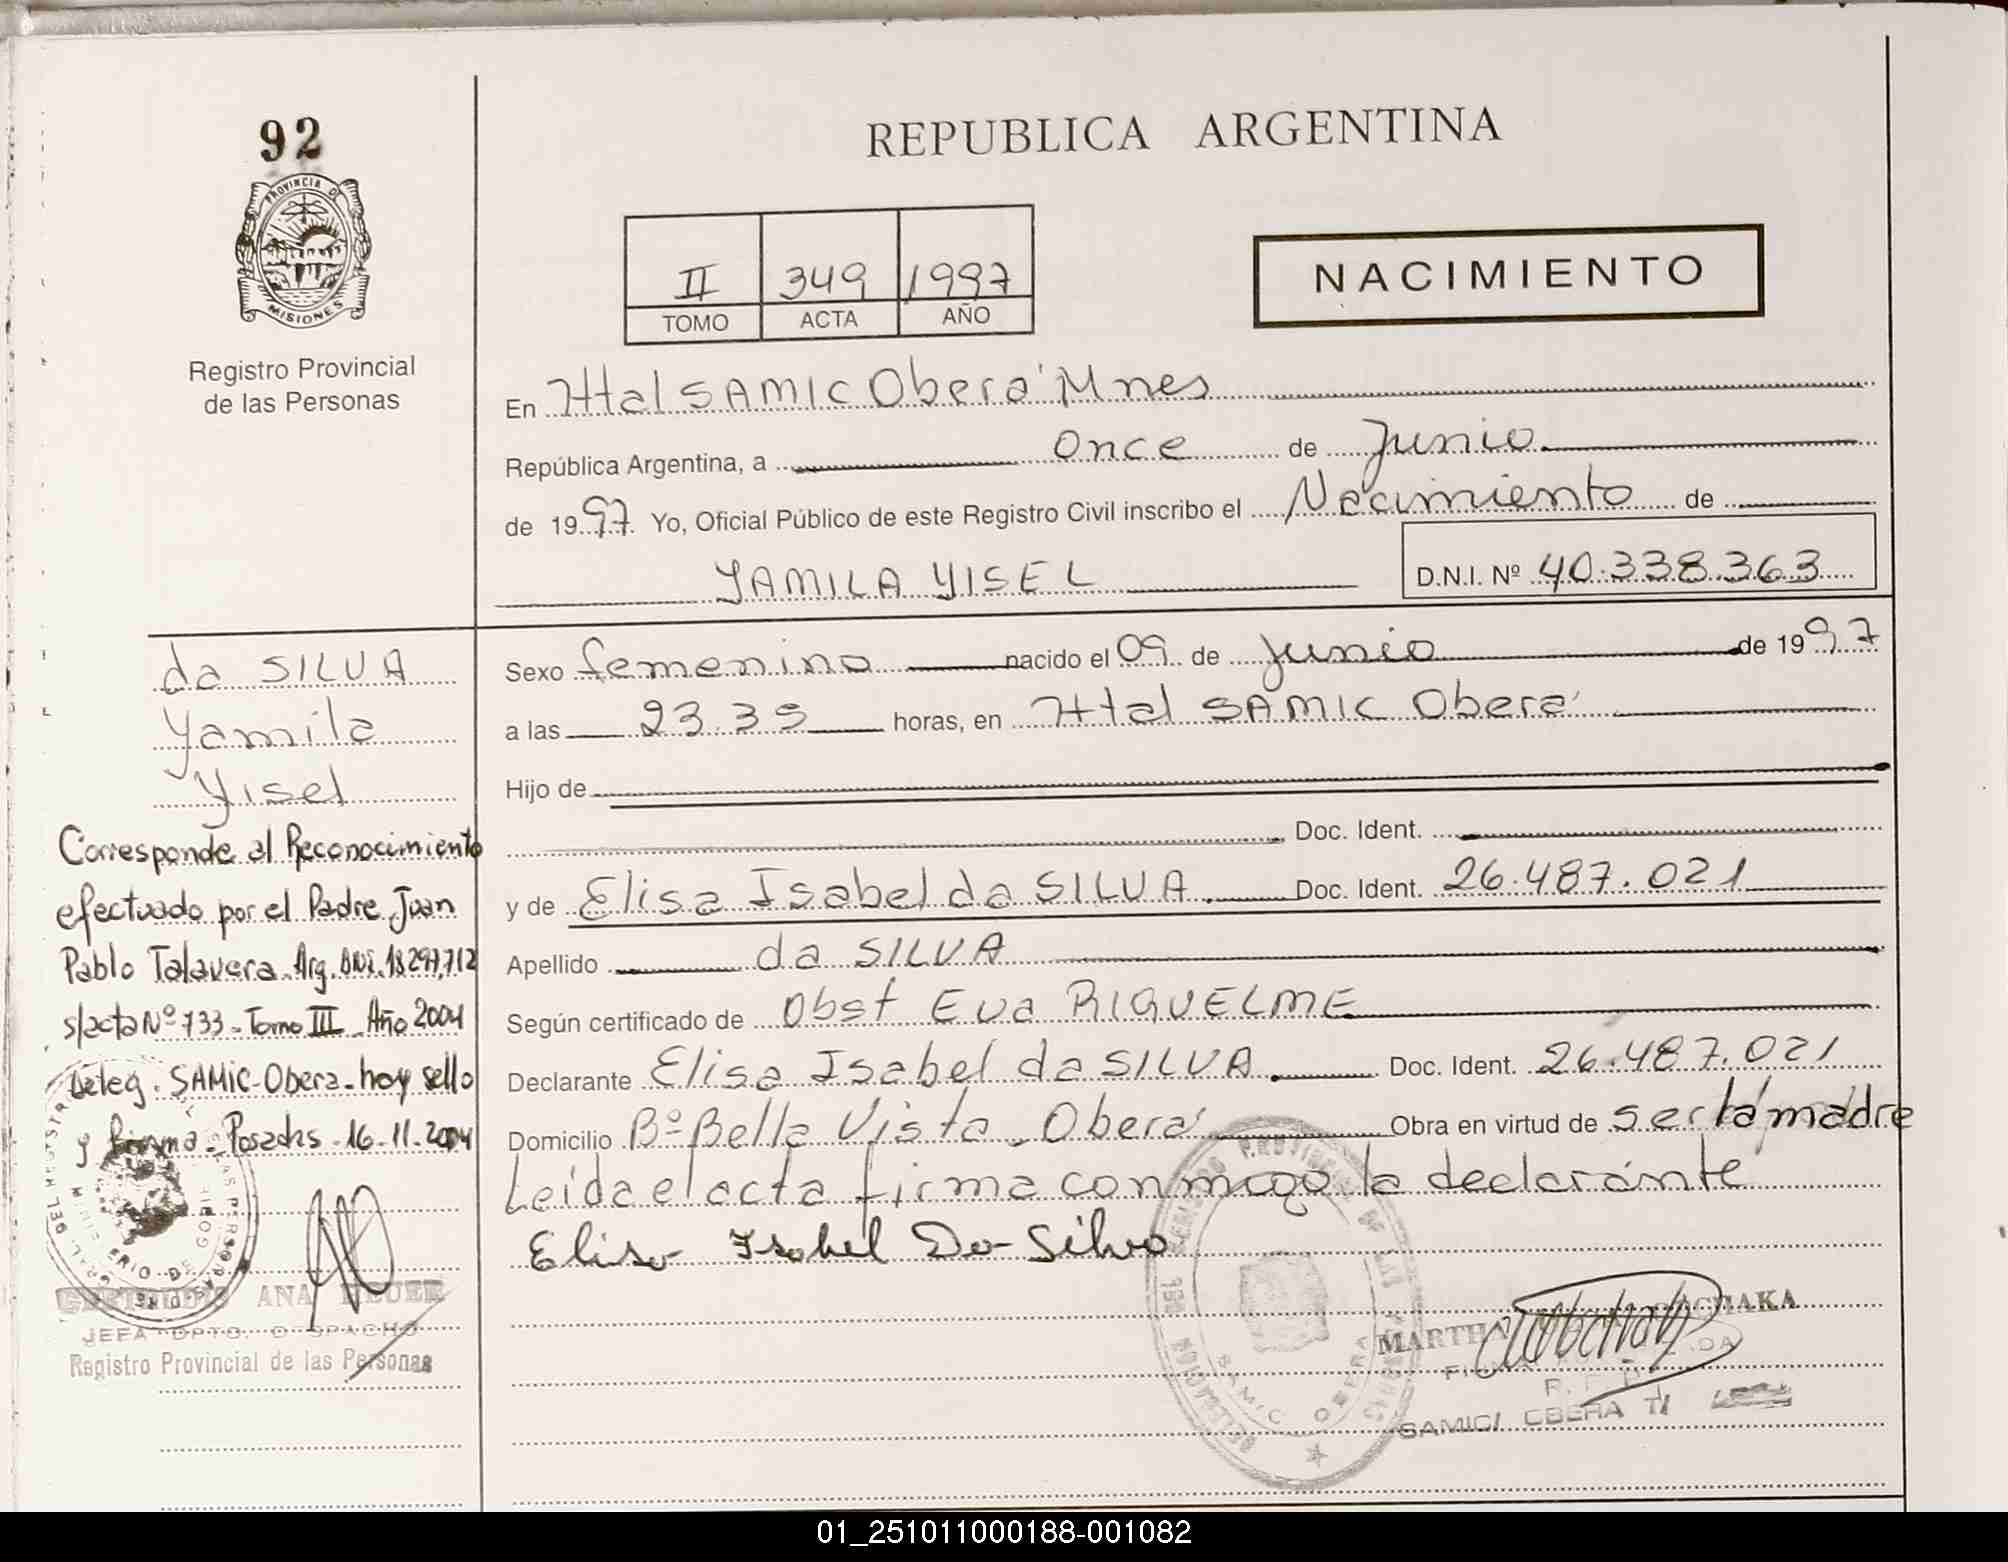 92
PROVINCIA DE
MISIONES
Registro Provincial
de las Personas
REPUBLICA ARGENTINA
II 349 1997
TOMO ACTA AÑO
NACIMIENTO
En Htal SAMIC Oberá Mnes
República Argentina, a once de Junio
de 1997. Yo, Oficial Público de este Registro Civil inscribo el Nacimiento de
YAMILA YISEL
D.N.I. Nº 40.338.363
da SILVA
Yamila
Yisel
Corresponde al Reconocimiento
efectuado por el Padre Juan
Pablo Talavera Arg. DNI. 18297,712
s/acta Nº 733 - Tomo III Año 2004
Deleg. SAMIC-Obera - hoy sello
y firma - Posadas - 16-11-2004
ANA
JEFA DPTO. DESPACHO
Registro Provincial de las Personas
Sexo femenino nacido el 09 de Junio de 1997
a las 23.35 horas, en Htal SAMIC Oberá
Hijo de
Doc. Ident.
y de Elisa Isabel da SILVA Doc. Ident. 26.487.021
Apellido da SILVA
Según certificado de Obst Eva RIQUELME
Declarante Elisa Isabel da SILVA Doc. Ident. 26.487.021
Domicilio Bº Bella Vista, Oberá Obra en virtud de ser la madre
Leída el acta firma conmigo la declarante
Elisa Isabel Da Silva
MARTHA
SAMIC OBERA
SAMIC/ OBERA
01_251011000188-001082